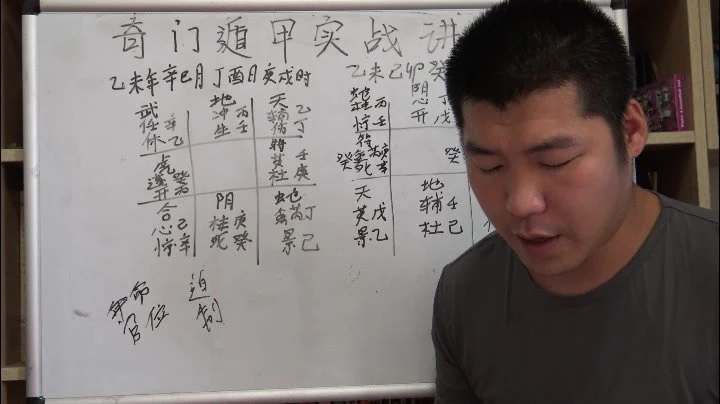 奇门遁甲实战讲
乙未年 辛巳月 丁酉日 庚戌时
乙未 己卯 癸
武 地 天
任辛 冲丙 辅乙
休乙 生壬 伤丁
蛇丙 阴丁
惊壬 开戊
虎 符壬
蓬癸 英庚
开 杜
符 庚
癸 死辛 癸
合 阴 蛇
心己 柱庚 芮丁
惊辛 死癸 景己
天 地
英戊 辅壬
景乙 杜己
命 迫
宫位 制